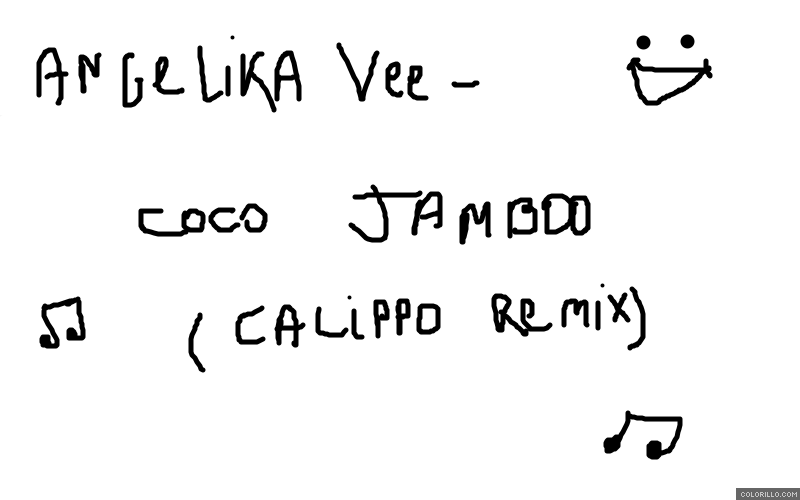 ANGELiKA Vee -
COCO JAMBOO
(CALiPPO Remix)
COLORILLO.COM